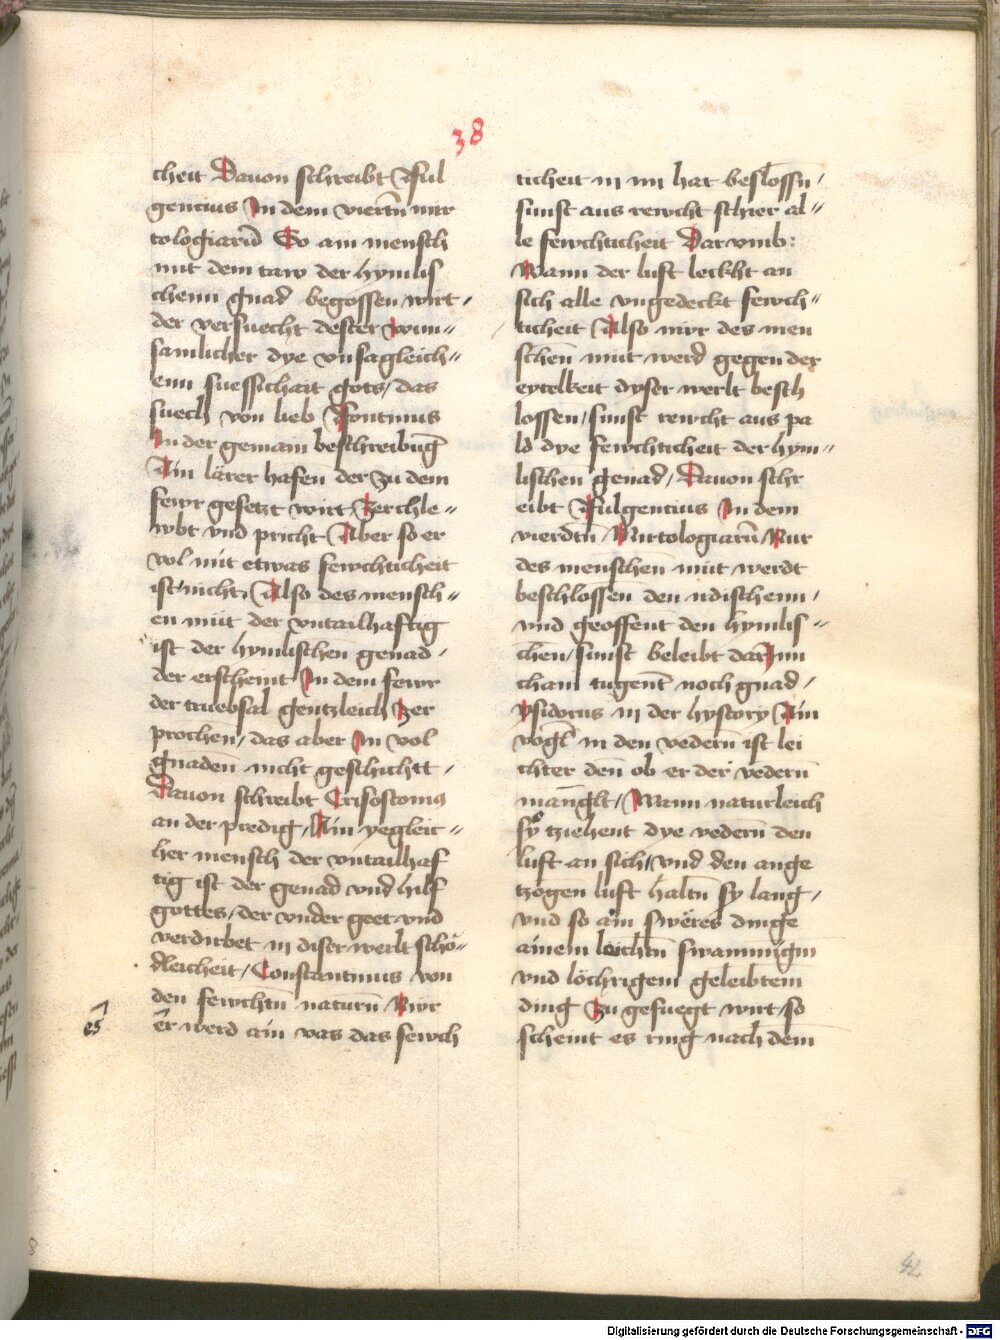 38
cheit Dauon schreibt Ful
gencius In dem vierdtn mit
tologiarum So ain mensch
mit dem taw der hymlis
chenn gnad begossen wirt /
der versuecht dester wun=
samlicher dye vnsagleich=
enn suessichait gots / das
suech von lieb Fontinus
In der gemain beschreibūg
Ain lärer hafen der zu dem
fewr gesetzt wirt Zerchle=
wbt vnd pricht Aber so er
vol mit etwas fewchticheit
ist nicht / Also des mensch=
en müt der vntailhaftig
ist der hymlischen genad /
der erscheint In dem fewr
der truebsal gentzleich Zer
prochen / das aber In vol
gnaden nicht geschichtt /
Dauon schreibt Crisostomus
an der predig / Ain yegleit=
her mensch der vntailhaf
tig ist der genad vnd hilf
gottes / der vnder geet vnd
verdirbet in diser werlt schö=
dleicheit / Constantinus von
den fewchtn naturn Wir
es er werd ain vas das fewch
ticheit in im hat beslossn /
sunst aus rewcht schier al=
le fewchticheit Dar vmb:
Wann der luft leckht an
sich alle vngedeckt fewch=
ticheit Also nwr des men
schen müt werd gegen der
eytelkeit dyser werlt besch
lossen / sunst rewcht aus pa
ld dye fewchticheit der hym=
lischen genad / Dauon schr
eibt Fulgencius In dem
vierdtn Mittologiarū Nur
des menschen müt werdt
beschlossen den irdischenn /
vnd geoffent den hymlis=
chen / sunst beleibt dar Inn
chain tugent noch gnad /
Ysidorus in der hystory Ain
vögl in den vedern ist lei
chter den ob er der vedern
manglt / Wann naturleich
sy tziehent dye vedern den
luft an sich / vnd den ange
tzogen luft haltn sy lang /
vnd so ain swëres dinge
ainem leichtn swammigm
vnd löchrigem geleibtem
ding Zu gefuegt wirt / so
scheint es ring nach dem
42
Digitalisierung gefördert durch die Deutsche Forschungsgemeinschaft - DFG